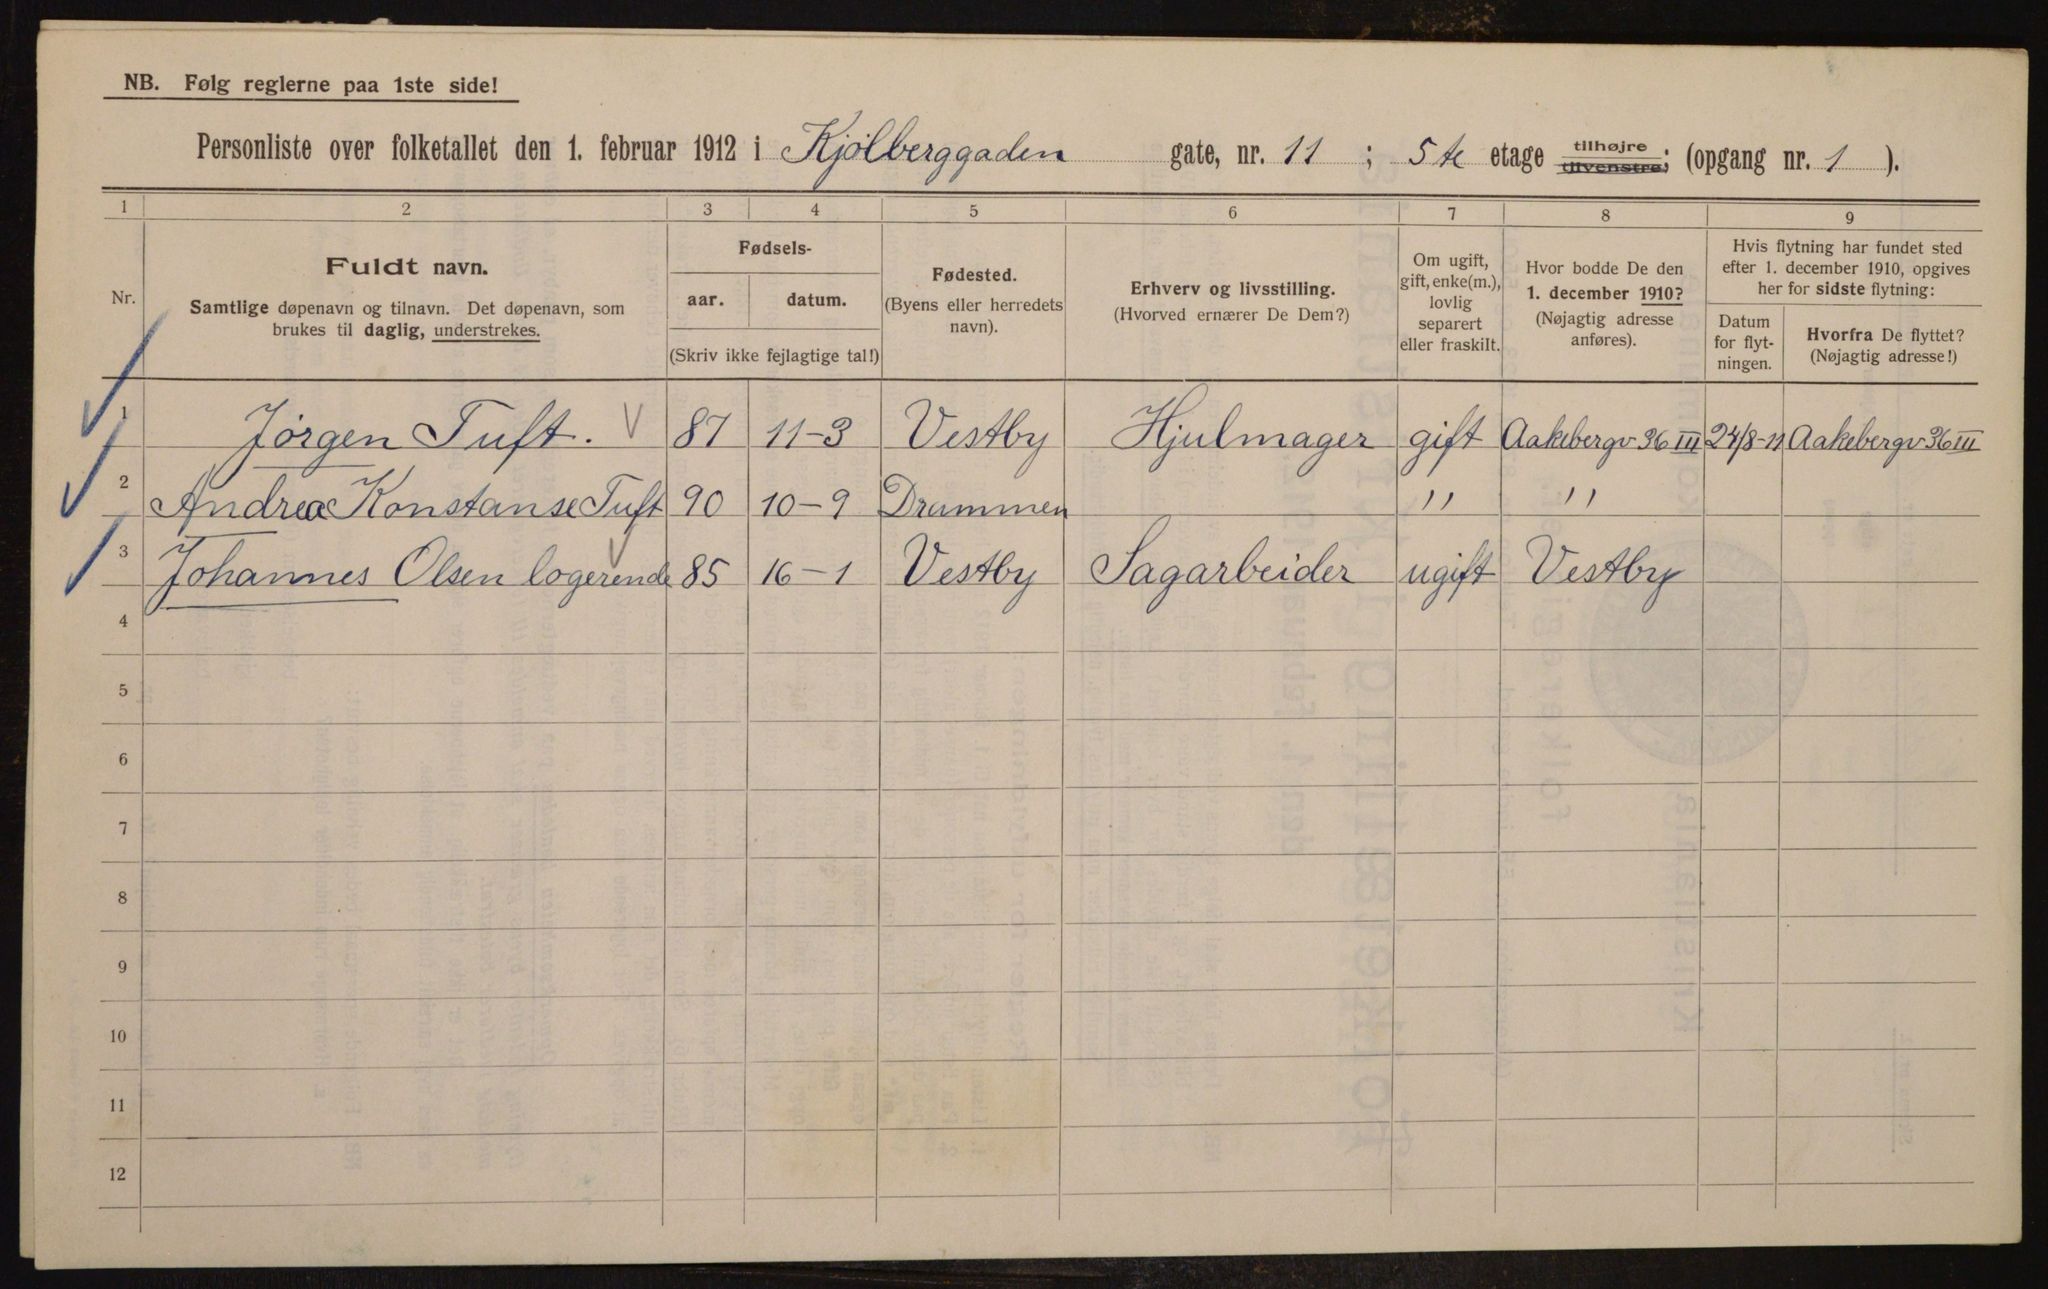 NB. Følg reglerne paa 1ste side!
Personliste over folketallet den 1. februar 1912 i Kjölberggaden gate, nr. 11 ; 5te etage tilhøjre tilvenstre; (opgang nr. 1 ).
1 2 3 4 5 6 7 8 9
Nr.
Fuldt navn.
Samtlige døpenavn og tilnavn. Det døpenavn, som
brukes til daglig, understrekes.
Fødsels-
aar. datum.
(Skriv ikke fejlagtige tal!)
Fødested.
(Byens eller herredets
navn).
Erhverv og livsstilling.
(Hvorved ernærer De Dem?)
Om ugift,
gift, enke(m.),
lovlig
separert
eller fraskilt.
Hvor bodde De den
1. december 1910?
(Nøjagtig adresse
anføres).
Hvis flytning har fundet sted
efter 1. december 1910, opgives
her for sidste flytning:
Datum
for flyt-
ningen.
Hvorfra De flyttet?
(Nøjagtig adresse!)
1 Jörgen Tuft. 87 11-3 Vestby Hjulmager gift Aakebergv 36 III 24/8-11 Aakebergv 36 III
2 Andrea Konstanse Tuft 90 10-9 Drammen " "
3 Johannes Olsen logerende 85 16-1 Vestby Sagarbeider ugift Vestby
4
5
6
7
8
9
10
11
12